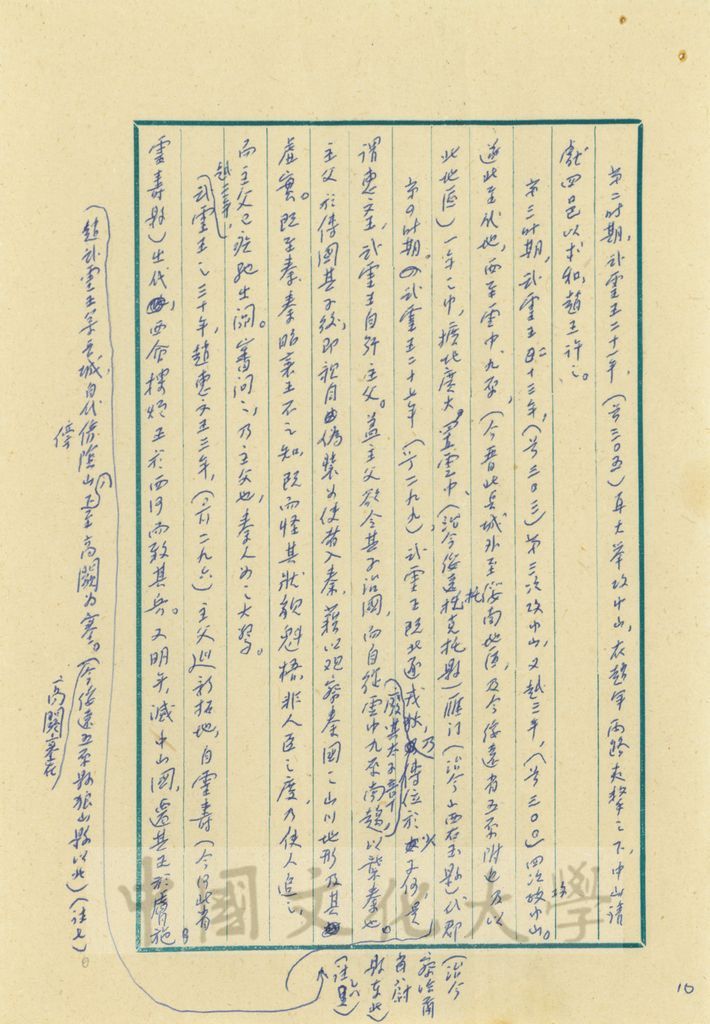 第二時期，武靈王二十一年，（前三〇五）再大舉攻中山，在趙軍兩路夾擊之下，中山請
獻四邑以求和，趙王許之。
第三時期，武靈王二十三年，（前三〇三）第三次攻中山，又越三年，（前三〇〇）四次攻中山。
遂北至代地，西至雲中、九原，（今晉北長城外至綏南地區，及今綏遠省五原附近及以
此地區）一年之中，擴地廣大，置雲中、（治今綏遠托克托縣）雁門（治今山西右玉縣）代郡
（治今察哈爾省蔚縣東北）（註六）
第四時期。武靈王二十七年，（前二九九）武靈王既北逐戎狄，乃廢其太子章，傳位於少子何，是
謂惠文王，武靈王自號主父。蓋主父欲令其子治國，而自從雲中九原南趨以襲秦也。
主父於傳國其子後，即親自偽裝為使者入秦，藉以觀察秦國之山川地形及其
虛實。既至秦，秦昭襄王不之知，既而怪其狀貌魁梧，非人臣之度，乃使人追之，
而主父已疾馳出關。審問之，乃主父也，秦人為之大驚。
趙主父，（武靈王之三十年，趙惠文王三年，（前二九六）主父巡新拓地，自靈壽（今河北省
靈壽縣）出代，西會樓煩王於西河而致其兵。又明年，滅中山國，遷其王於膚施
（趙武靈王築長城，自代傍陰山下至高闕為塞。（高闕塞在今綏遠五原縣狼山縣以北）（註七）。
傍
中國文化大學
10